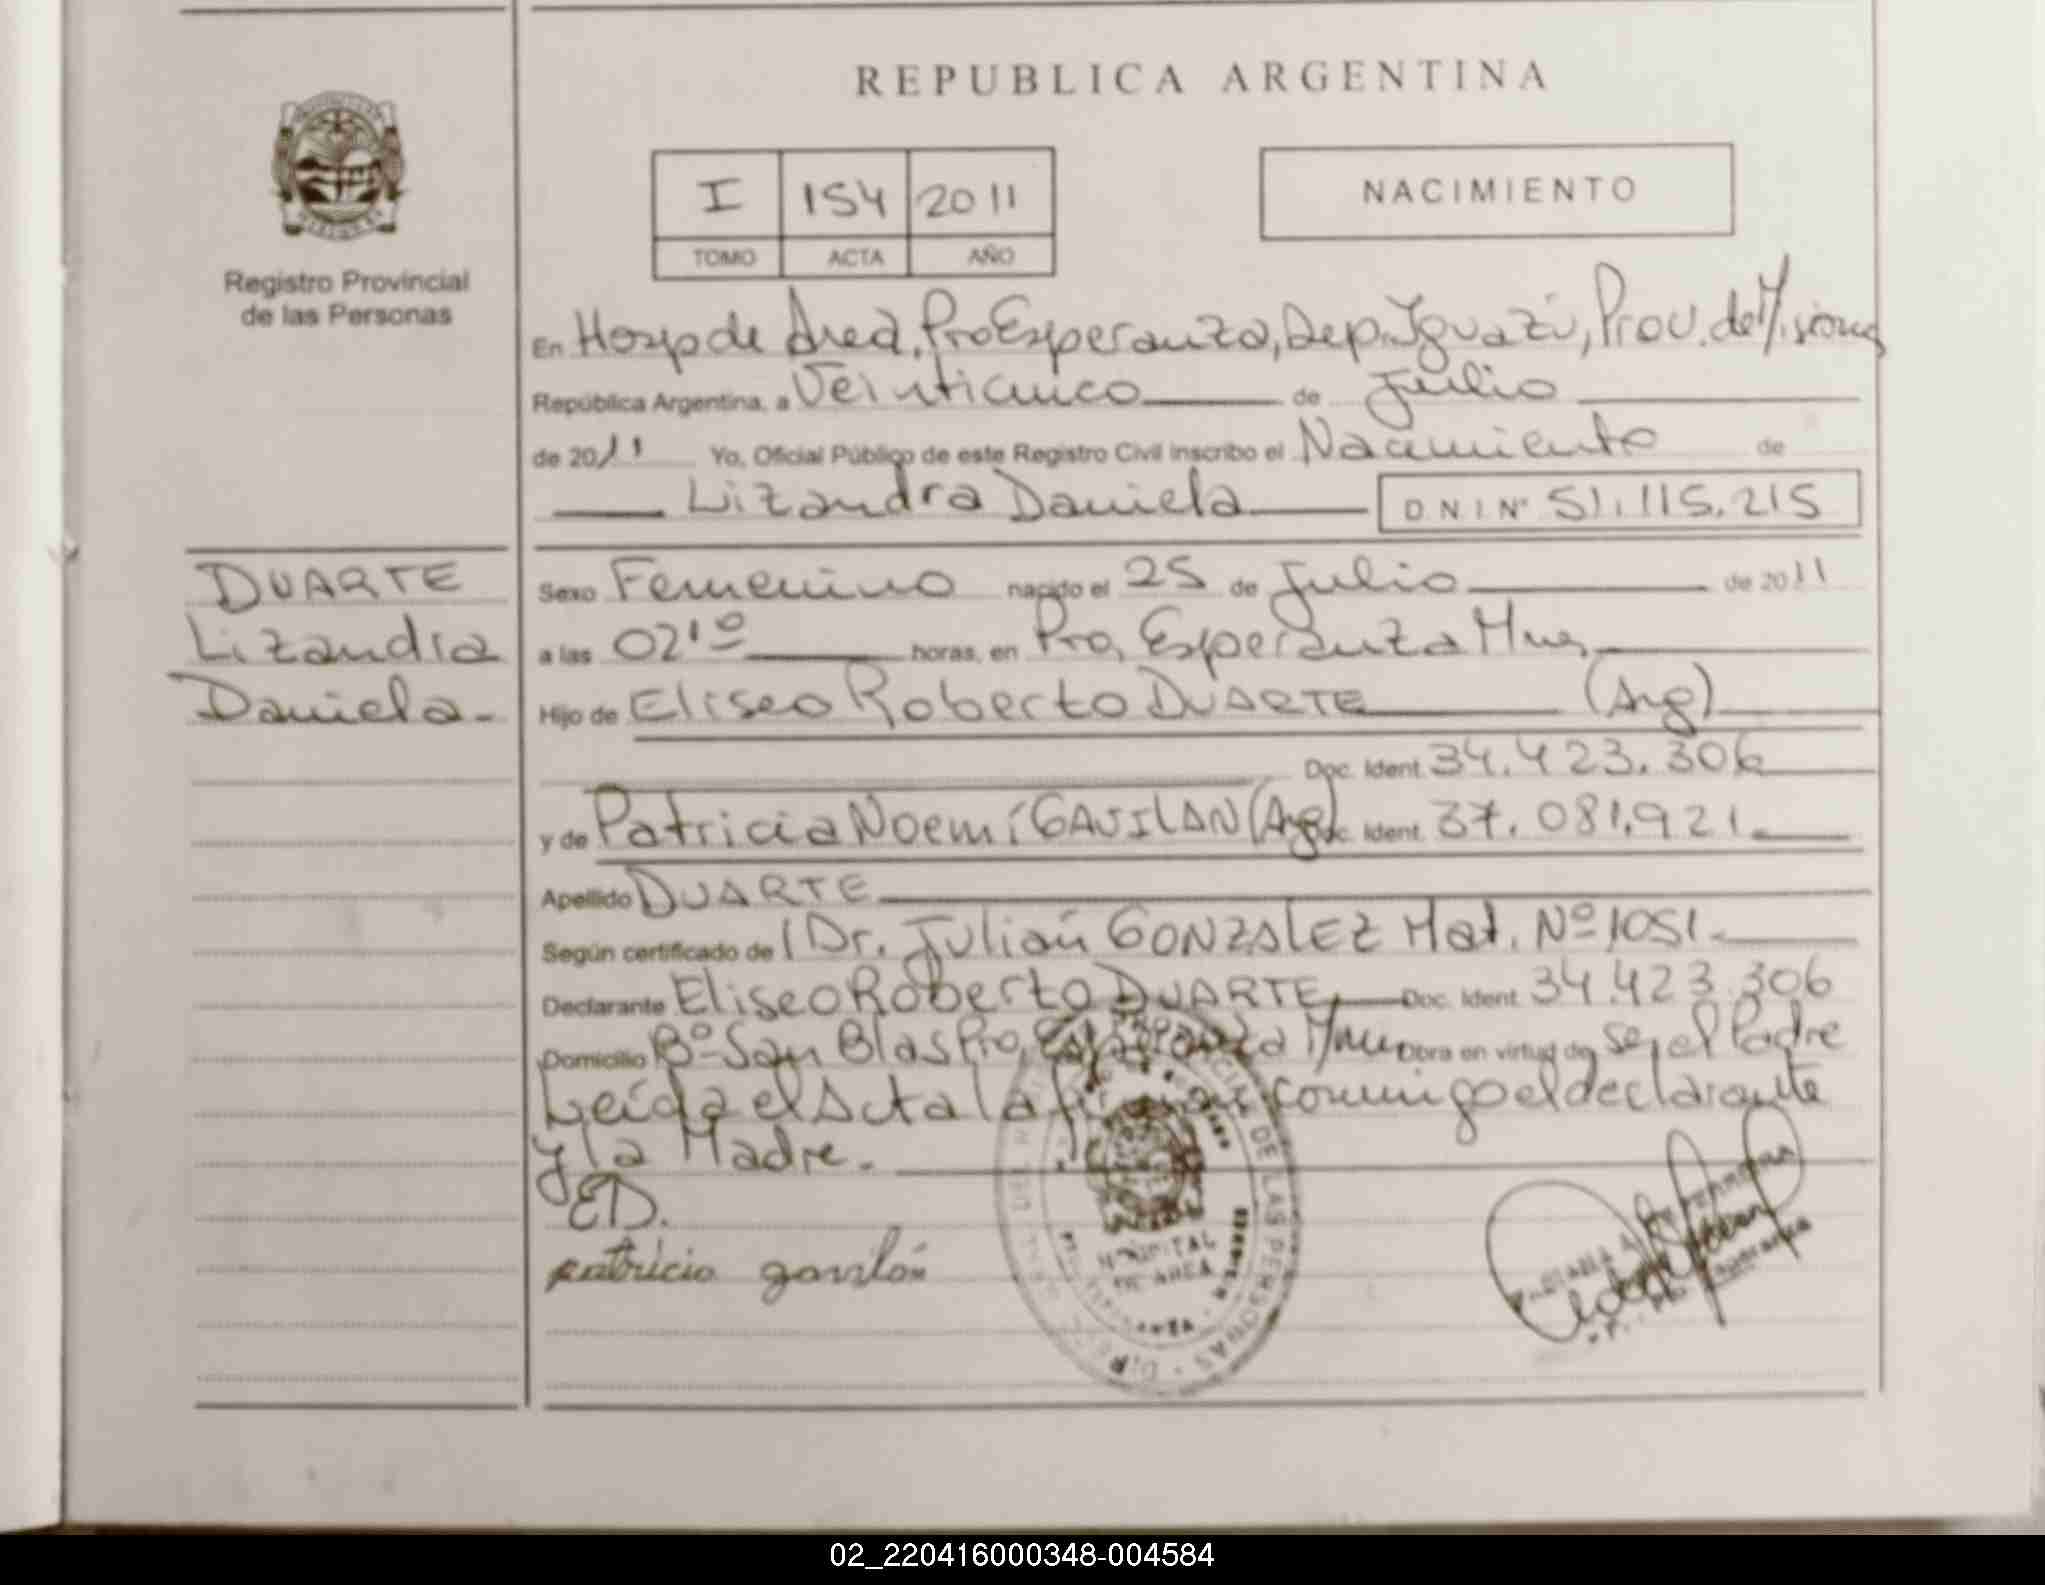 REPUBLICA ARGENTINA
I 154 2011
TOMO ACTA AÑO
NACIMIENTO
Registro Provincial
de las Personas
En Hosp de Area, Pto Esperanza, Dep. Iguazú, Prov. de Misiones
República Argentina, a Veinticinco de Julio
de 2011 Yo, Oficial Público de este Registro Civil inscribo el Nacimiento de
Lizandra Daniela D N I Nº 51.115.215
DUARTE
Lizandra
Daniela.-
Sexo Femenino nacido el 25 de Julio de 2011
a las 02¹⁰ horas, en Pto, Esperanza Mnes
Hijo de Eliseo Roberto DUARTE (Arg)
Doc. Ident. 34.423.306
y de Patricia Noemí GAVILAN (Arg) Doc. Ident. 37.081.921.
Apellido DUARTE
Según certificado de Dr. Julián GONZALEZ Mat. Nº 1051.
Declarante Eliseo Roberto DUARTE, Doc. Ident. 34.423.306
Domicilio Bº San Blas Pto, Esperanza Mnes Obra en virtud de ser el Padre
Leída el Acta la firman conmigo el declarante
y la Madre.
ED.
patricia gavilán
HOSPITAL
DE AREA
DE LAS PERSONAS
02_220416000348-004584